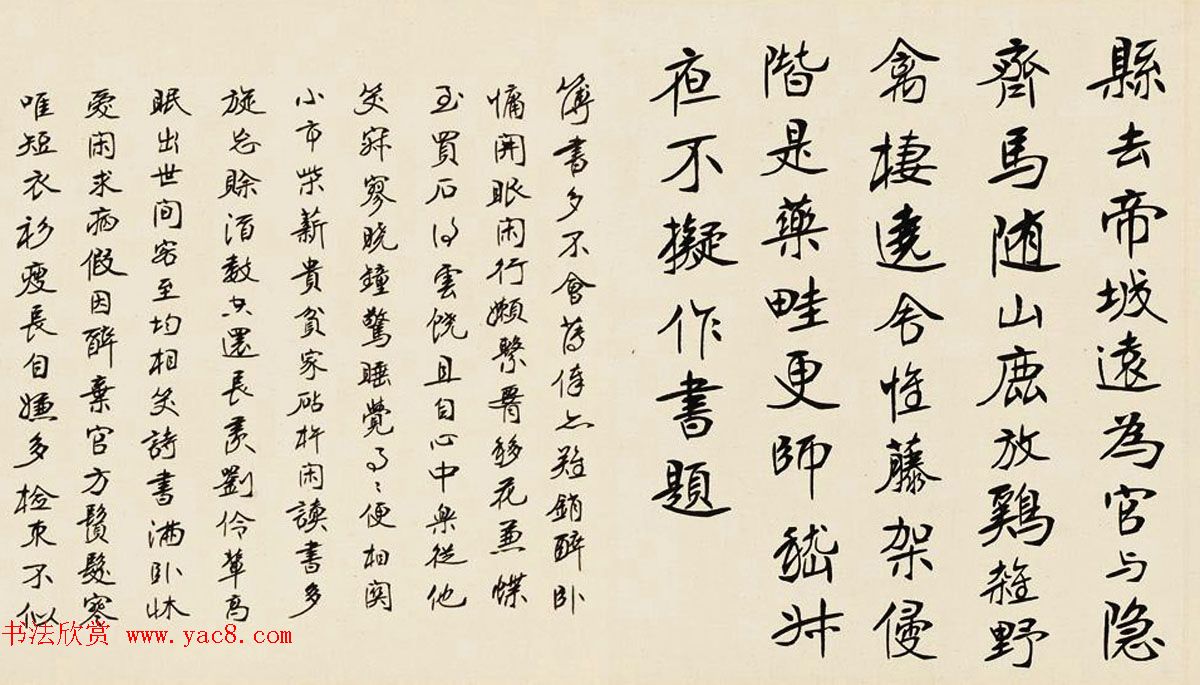 縣去帝城遠為官与隐
齊馬随山鹿放鷄雜野
禽棲遶舍惟藤架侵
階是藥畦更師嵇叔
夜不擬作書題
簿書多不會薄俸亦難銷醉卧
慵開眼閑行嬾繫腰移花兼蝶
至買石得雲饒且自心中樂從他
笑寂寥曉鐘驚睡覺事事便相関
小市柴薪貴貧家砧杵閑讀書多
旋忘賒酒數空還長羨劉伶輩高
眠出世間客至均相笑詩書滿卧牀
愛閑求病假因醉棄官方鬢髮寒
唯短衣衫瘦長自嫌多檢束不似
书法欣赏 www.yac8.com